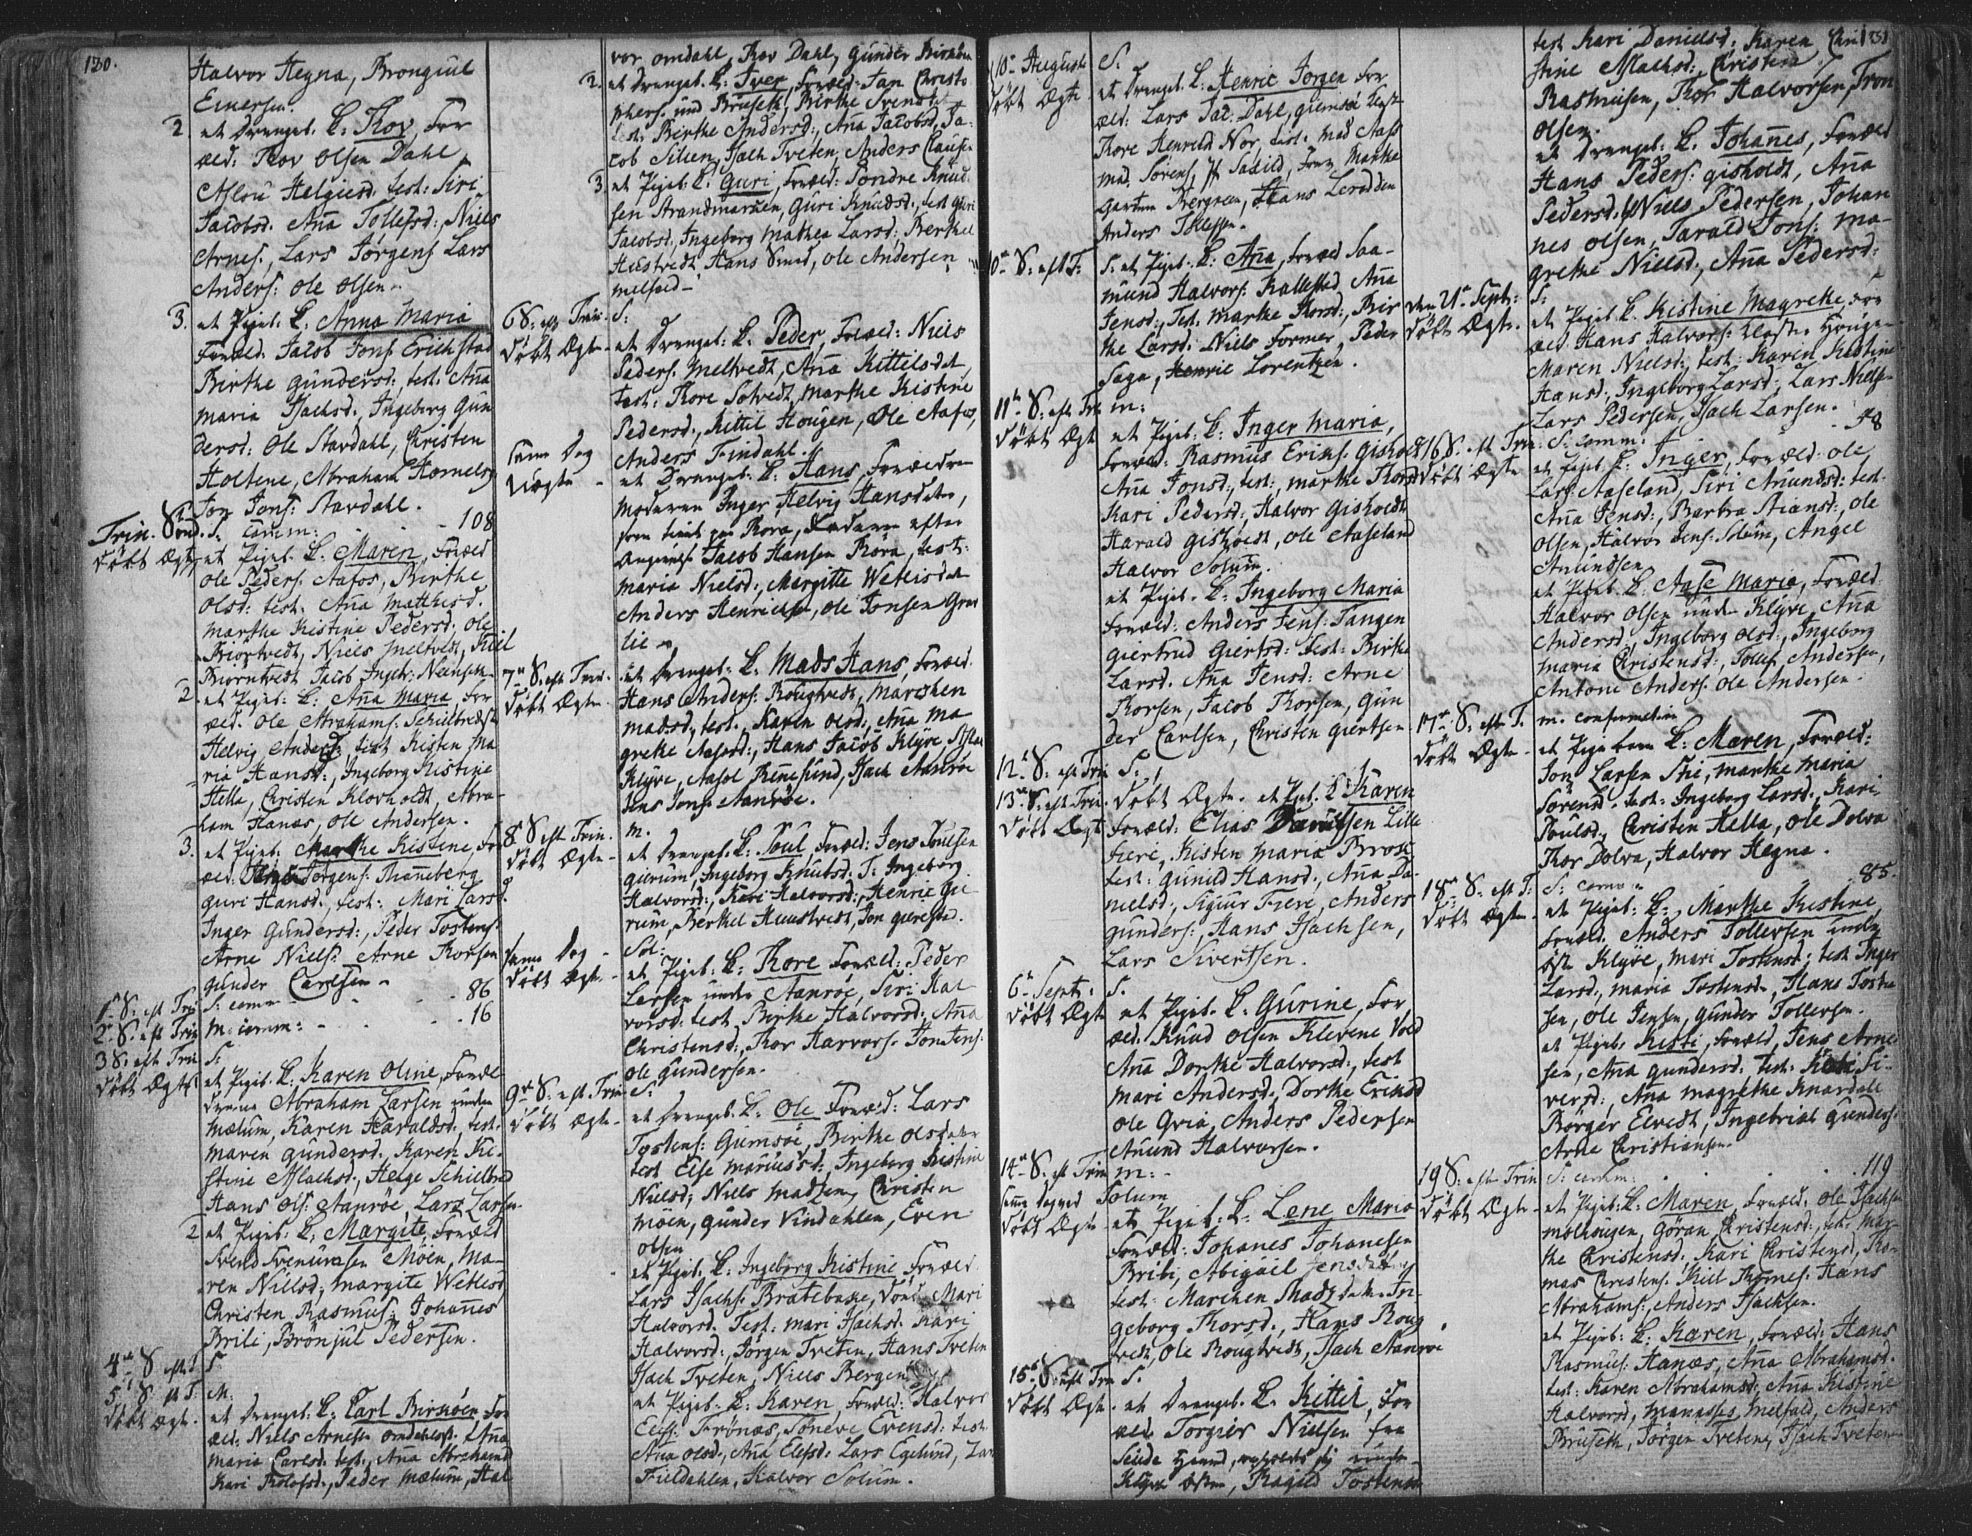 120.
Halvor Hegna, Bronguul
Einersen.
2. et Drengeb. L: Thov, For
æld: Thov Olsen Dahl
Aslou Helgiesd. test: Siri
Jacobsd. Aña Tollefsd:, Niels
Arnes:, Lars Jørgens Lars
Anders: Ole Olsen.
3. et Pigeb. L: Anna Maria
Foræld: Jacob Jons: Erichstad
Birthe Gundersd: test: Aña
Maria Isachsd:, Ingeborg Gun
dersd: Ole Stavdahl, Christen
Holtene, Abraham
Jon Jons: Stavdahl.
Trin. Sønd. S: comm: - 108
Døbt Ægte et Pigeb. L: Maren, Foræld
Ole Peders: Aafos, Birthe
Olsd: test. Aña Matthisd.
Marthe Kistine Pedersd: Ole
Biortvedt, Niels Meltvedt, Kiil
Biorntvedt Jacob
2. et Pigeb: L: Aña Maria For
æld. Ole Abrahams:
Helvig Andersd: test Kisten Ma
ria Hansd:, Ingeborg Kistine
Hella, Christen Klovholdt, Abra-
ham Hanæs, Ole Andersen.
3. et Pigeb: Marthe Kistine, For
æld: Jørgens:
Guri Hansd:, test: Mari Larsd.
Inger Gundersd:, Peder Tostens:
Arne Niels: Arne Thorsen
Gunder Carlsen -
1e S: eft Tri S: comm - 86
2e S. eft Trin m: comm: - 16
3 S: eft Trin S:
Døbt Ægte et Pigeb. L: Karen Oline, Foræl
drene Abraham Larsen under
Mælum, Karen Haraldsd:, test.
Maren Gundersd. Karen Ki-
stine Aslachsd:, Helge
Hans Ols: Aanrøe, Lars Larsen
2 et Pigeb: L: Margite, Foræld
Svend Svenunsen Møen, Ma-
ren Nielsd, Margite Wetlesd
Christen Rasmus: Johañes
Brili, Brønjul Pedersen.
4de S eft T. S.
5te S. eft T. M.
Døbt Ægte. et Drengeb. L: Carl For
æld: Niels Arnesen Omdahl Aña
Maria Carlsd. test. Aña Abrahamsd
Kari Peder Mælum, Hal
vor Omdahl, Thov Dahl, Gunder
2. et Drengeb. L: Iver, Foræld: Jan Christo
phers: und Bruseth, Birthe Svensd
test: Birthe Andersd:, Aña Jacobsd, Ja-
cob Isach Tveten, Anders Clausen
3 et Pigeb. L: Guri, Foræld: Sondre Knud
sen Strandmarken, Guri Knudsd:, test Guri
Jacobsd, Ingeborg Mathea Larsd:, Berthel
Hustvedt Hans Smed, Ole Andersen
6 S: eft Trin. S:
Døbt Ægte et Drengeb. L. Peder, Foræld: Niels
Peders: Meltvedt, Aña Kittilsdat.
test: Thore Solvedt, Marthe Kistine
Pedersd:, Kittil Hougen, Ole Aafos,
Anders Findahl.
Same Dag et Drengeb. L. Hans, Forældrene
Uægte - Moderen Inger Helvig Hansdater,
som tient paa Thora, Faderen efter
Jacob Hansen Thora, test:
Maria Nielsd:, Margitte Wetlesdat
Anders Henrichsen, Ole Jonsen Gras
lie -
7de S. eft Trin. et Drengeb: L. Mads Hans, Foræld.
Døbt Ægte. Hans Anders: Rougtvedt, Marichen
Madsd., test. Karen Olsd:, Aña Ma
grethe Hans Jacob Klyve,
Klyve, Aasol Isach Aanrøe
Jens Jons: Aanrøe.
8 S eft Trin. m.
Døbt Ægte - et Drengeb. L: Poul, Foræld: Jens Poulsen
Gurum, Ingeborg Knudsd: T: Ingeborg
Halvorsd:, Kari Halvorsd:, Henric Gu
rum, Berthel Huustvedt, Jon
Same Dag Sol:
Døbt Ægt et Pigeb: L: Thore Foræld: Peder
Larsen under Aanrøe, Siri Hal
vorsd: test Birthe Halvorsd:, Aña
Christensd:, Thor Jon Jens:
Ole Gundersen.
9de S. eft Trin S:
Døbt Ægte et Drengeb. L: Ole Foræld: Lars
Tostens: Gumsøe, Birthe Olsdater
test Else Ingeborg Kistine
Nielsd; Niels Madsen, Christen
Møen, Gunder Vindahlen, Even
Olsen
et Pigeb. L: Ingeborg Kistine Foræld:
Lars Isachs: Bratebake, Mari
Halvorsd. Test. Mari Isachsd. Kari
Halvorsd:, Jørgen Tveten, Hans Tveten
Isach Tveten, Niels Bergen
et Pigeb: L: Karen, Foræld: Halvor
Elefs: Trønæs, Evensd: test.
Aña Olsd, Aña Elefsd. Lars Eglund, Lars
Fieldahlen, Halvor Solum.
10de August S.
Døbt Ægte et Drengeb. L. Henric Jørgen For
æld: Lars Jac: Dahl, Giemsøe
Thore Henrikd Nor, test. Mad Aass
Md. Sørens, Marthe
Gartner Bergreen, Hans
Anders Tollefsen.
10de S: eft T: S: et Pigeb: L: Aña, Foræld Saa-
mund Halvors: Kallested Aña
Jensd:, Test. Marthe Thorsd:, Bir
the Larsd. Niels Former, Peder
Saga, Henric Lorentzen.
11te S: eft Tri m:
Døbt Ægt et Pigeb: L: Inger Maria,
Foræld: Rasmus Eriks: Gisholt
Aña Jonsd:, test:, Marthe Thorsd
Kari Pedersd:, Halvor Gisholdt
Harald Gisholdt, Ole Aaseland
Halvor Solum.
et Pigeb. L. Ingeborg Maria
Foræld: Anders Jens: Tangen
Giertrud Giertsd: test: Birthe
Larsd. Aña Jensd: Arne
Thorsen, Jacob Thorsen, Gun
der Carlsen, Christen Giertsen
12te S: eft Trin S:
13de S: eft Trin. Døbt Ægte. et Pigeb. L: Karen
Døbt Ægt Foræld: Elias Danielsen Lille
fieri, Kisten Maria Brosi
test: Gunild Hansd:, Aña Da-
nielsd:, Sigiur Fieri, Anders
Gunders:, Hans Isachsen,
Lars Sivertsen.
6te Septr: S.
Døbt Ægte et Pigeb. L. Gurine, For
æld: Knud Olsen Klevene Vold
Aña Dorthe Halvorsd:, test
Mari Andersd. Dorthe Eriksd
Ole Gria, Anders Pedersen
Amund Halvorsen.
14de S. eft Trin m: -
Same Dag ved Solum
Døbt Ægte et Pigeb: L: Lene Maria
Foræld: Johañes Johañesen
Brili, Abigail Jensdater
test: Marchen Madsdater In-
geborg Thorsd:, Hans Roug
tvedt, Ole Rougtvedt, Isach Aanrøe
15de S: eft Trin S.
Døbt Ægte. et Drengeb. L. Kittil, For
æld. Torgier Nielsen fra
Seude Hered, opholdt sig under
Klyve Østre, Ragild Tostensd
131
test Kari Danielsd: Karen Chri
stine Aslachsd: Christen
Rasmusen, Thor Halvorsen, Tron
Olsen.
et Drengeb: L. Johañes, Foræld
Hans Peders: Gisholdt, Aña
Pedersd. Niels Pedersen, Johan
nes Olsen, Tarald Jons: Ma-
grethe Nielsd., Aña Pedersd:
Den 21de Septr: S:
Døbt Ægte. et Pigeb. L. Kistine Magrethe, For
æld Hans Halvors:
Maren Nielsd: test: Karen Kistine
Hansd:, Ingeborg Larsd:, Lars Niels
Lars Pedersen, Isach Larsen.
16 S: eft Trin. S: comm: - 48
Døbt Ægte et Pigeb. L: Inger, Foræld: Ole
Lars: Aaseland, Siri Amundsd: test.
Aña Jensd:, Barbra Stiansd:, Ole
Olsen, Halvor Jens: Solum, Angel
Amundsen
et Pigeb. L. Aase Maria, Foræld.
Halvor Olsen under Klyve, Aña
Andersd, Ingeborg Olsd:, Ingeborg
Maria Christensd:, Tollef Andersen,
Antoni Anders: Ole Andersen.
17de S. eft T. m. confirmation
Døbt Ægte et Pigebarn L: Maren, Foræld:
Jon Larsen Stie, Marthe Maria
Sørensd. test: Ingeborg Larsd:, Kari
Poulsd:, Christen Hella, Ole Dolva
Thor Dolva, Halvor Hegna.
18de S. eft T: S: comm - 85.
Døbt Ægte et Pigeb: L:, Marthe Kistine
Foræld. Anders Tollevsen under
Øst Klyve, Mari Tostensd: test Inger
Larsd:, Maria Tostensd:, Hans Toste
sen, Ole Jensen, Gunder Tollevsen.
et Pigeb. Kisti, Foræld, Jens Arne
sen, Aña Gundersd: test. Kisti Si-
versd:, Aña Magrethe Knardahl
Børger Elvedt, Ingebrict Gunders:
Arne Christiansen.
19 S: eft Trin S: comm: - 119
Døbt Ægte. et Pigeb: L: Maren, Foræld: Ole Isachsen
Molhougen, Gøran Christensd:, test: Mar-
the Christensd:, Kari Christensd, Tho-
mas Christens: Kiil Thomes: Hans
Abrahams:, Anders Isachsen.
et Pigeb: L: Karen, Foræld: Hans
Rasmus: Hanæs, Aña Abrahamsd.
test: Karen Abrahamsd:, Aña Kistine
Halvorsd, Manasses Melfald, Anders
Bruseth, Jørgen Tveten, Isach Tveten